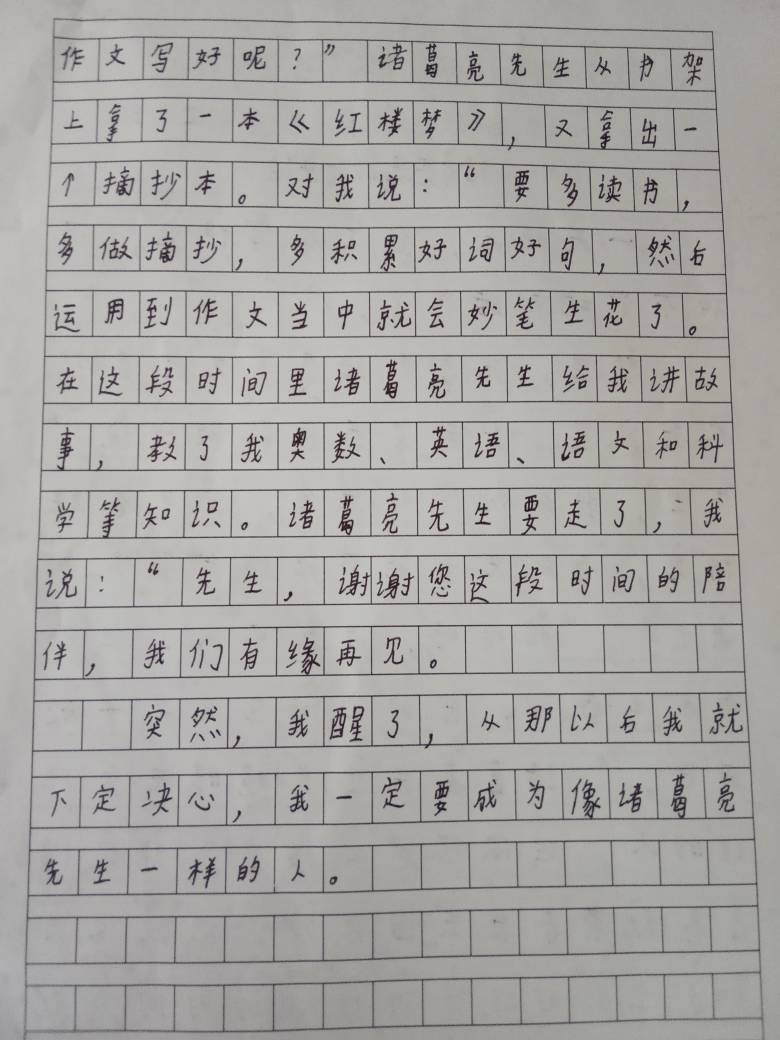 作文写好呢?”诸葛亮先生从书架
上拿了一本《红楼梦》,又拿出一
个摘抄本。对我说:“要多读书,
多做摘抄,多积累好词好句,然后
运用到作文当中就会妙笔生花了。
在这段时间里诸葛亮先生给我讲故
事,教了我奥数、英语、语文和科
学等知识。诸葛亮先生要走了,我
说:“先生,谢谢您这段时间的陪
伴,我们有缘再见。
突然,我醒了,从那以后我就
下定决心,我一定要成为像诸葛亮
先生一样的人。